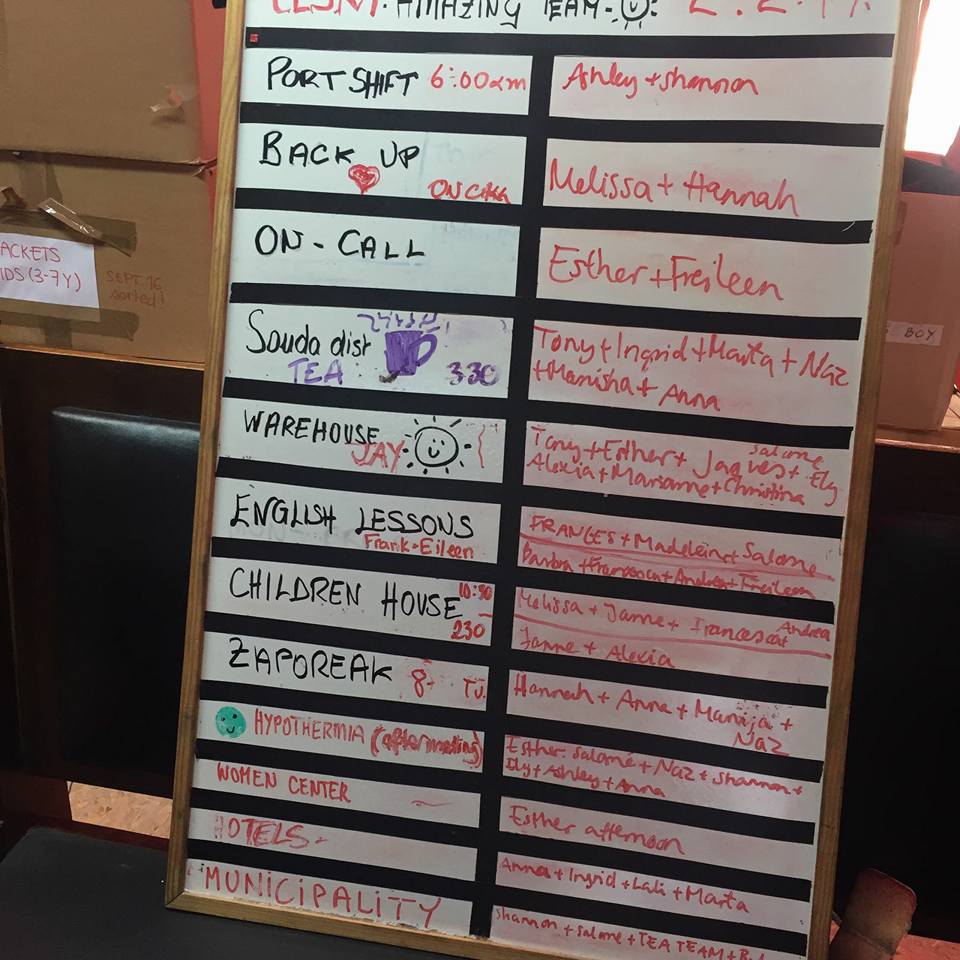 AMAZING TEAM
PORT SHIFT 6:00am Ashley + Shannon
BACK UP Melissa + Hannah
ON CALL
ON-CALL Esther + Freileen
Souda dist Tony + Ingrid + Marta + Naz
TEA 330 + Manisha + Anna
WAREHOUSE Tony + Esther + Jaques + Salome
JAY Alexia + Marianne + Christina Ely
ENGLISH LESSONS FRANCES + Madelein + Salome
Frank-Eileen Barbra + Francesca + Andrea + Freileen
CHILDREN HOUSE 10:30 Melissa + Janne + Francesca + Andrea
230 Janne + Alexia
ZAPOREAK 8- TU. Hannah + Anna + Manija +
Naz
HYPOTHERMIA (after meeting) Esther Salomé + Naz + Shannon +
Ely + Ashley + Anna
WOMEN CENTER Esther afternoon
HOTELS- Anna + Ingrid + Lali + Marta
MUNICIPALITY Shannon + Salomé + TEA TEAM +
ACKETS
IDS (3-7Y)
SEPT 16
sorted!
BOY